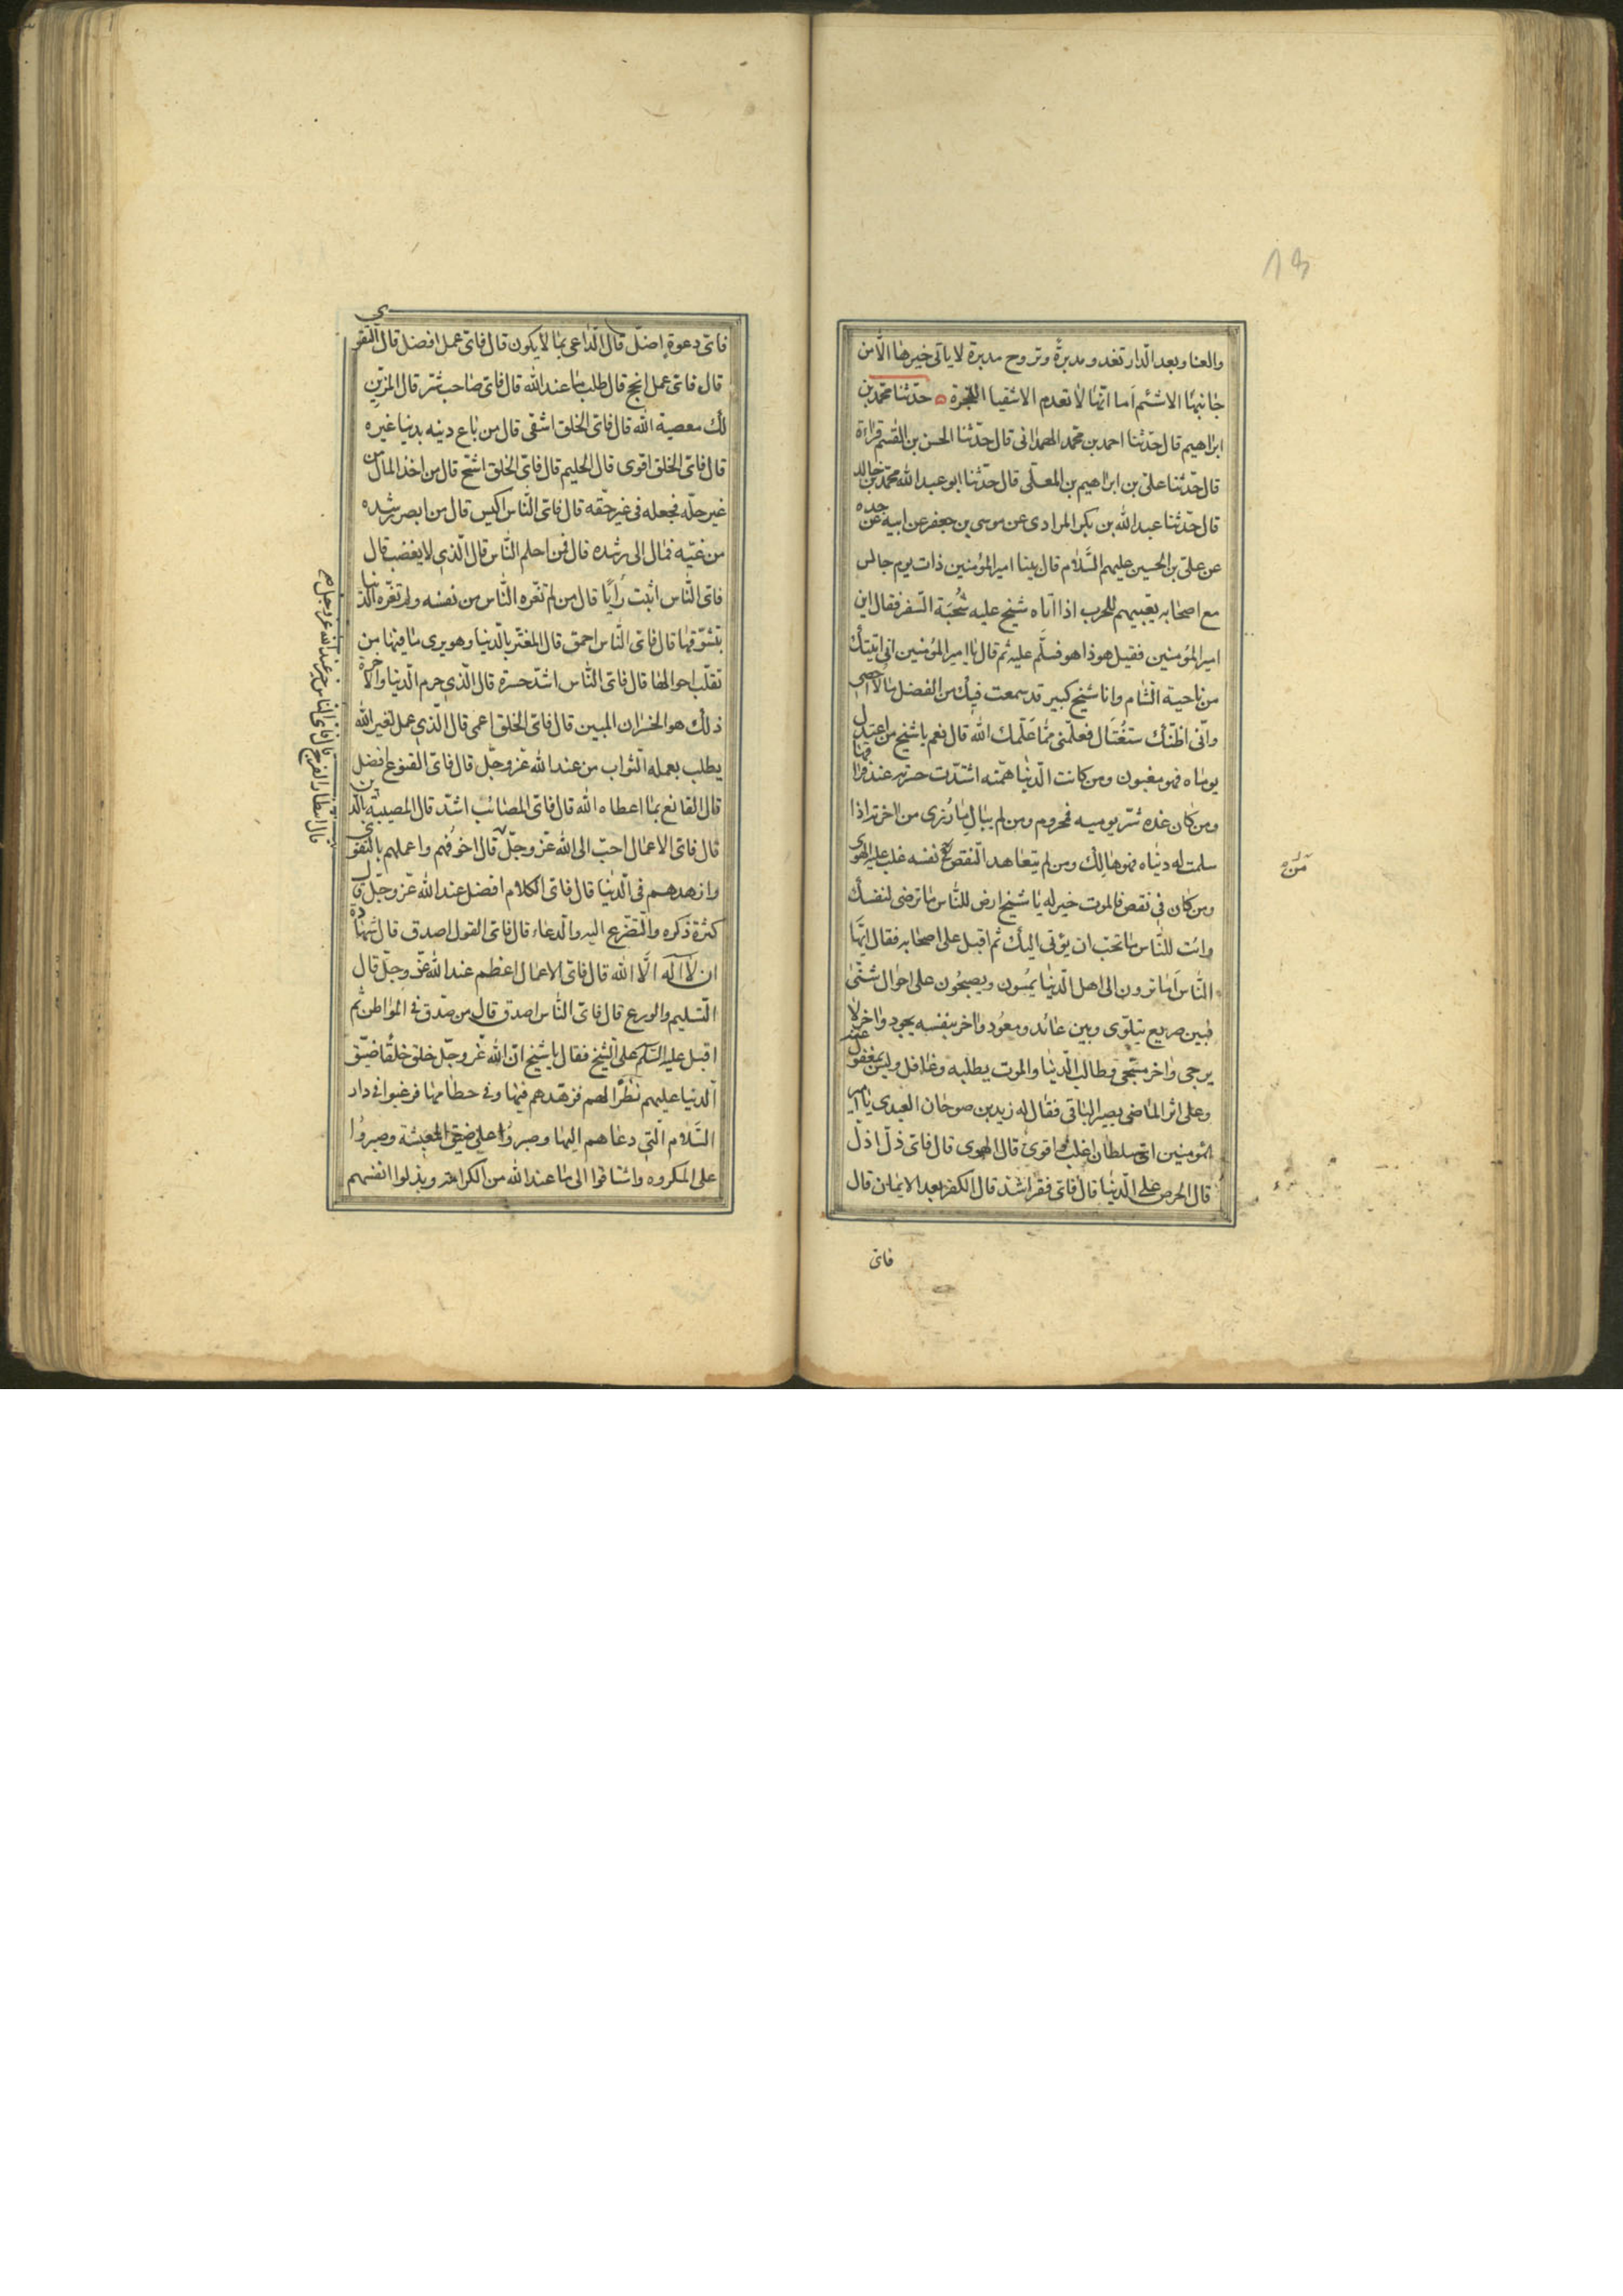 والعنا وبعد الدار تغدو مدبرةً وتروح مدبرة لا ياتى خيرها الّا من
جانبها الاشئم اَما انّها لا تعدم الاشقيا الفجرة حدّثنا محمّد بن
ابراهيم قال حدّثنا احمد بن محمّد الهمدانى قال حدّثنا الحسن بن القسم قراءة
قال حدّثنا على بن ابراهيم بن المعلّى قال حدّثنا ابو عبد الله محمّد بن خالد
قال حدّثنا عبد الله بن بكر المرادى عن موسى بن جعفر عن ابيه عن جده
عن على بن الحسين عليهم السَّلام قال بينا امير المؤمنين ذات يوم جالس
مع اصحابه يعبيهم للحرب اذا اتاه شيخ عليه شُحبَة السّفر فقال اين
امير المؤمنين فقيل هو ذا هو فسلّم عليه ثم قال يا امير المؤمنين انى اتيتك
من ناحية الشام وانا شيخ كبير قد سمعت فيك من الفضل ما لا احصى
وانّى اظنّك ستُغتَال فعلّمنى ممّا علّمك الله قال نعم يا شيخ من اعتدل
يوماه فهو مغبون ومن كانت الدّنيا همّته اشتدّت حسرته عند فراقها
ومن كان غده شرّ يوميه فمحروم ومن لم يبال ما رُزى من اخرته اذا
سلمت له دنياه فهو هالك ومن لم يتعاهد النّقص من نفسه غلب عليه الهوى
ومن كان فى نقص فالموت خير له يا شيخ ارض للنّاس ما ترضى لنفسك
وائت للنّاس ما تحبّ ان يؤتى اليك ثم اقبل على اصحابه فقال ايّها
النّاس اَما ترون الى اهل الدّنيا يمسُون ويصبحُون على احوال شتّى
فبين صريع يتلوّى وبين عائد ومعُود واخر بنفسه يجود واخر لا
يرجى واخر مسجّى وطالب الدّنيا والموت يطلبه وغافل وليس بمغفول عنه
وعلى اثر الماضى يصير الباقى فقال له زيد بن صوحان العبدى يا امير
المؤمنين اىّ سلطان اغلب واقوى قال الهوى قال فاىّ ذلّ اذلّ
قال الحرص على الدّنيا قال فاىّ فقر اشدّ قال الكفر بعد الايمان قال
فاىّ
فاىّ دعوة اضلّ قال الدّاعى بما لا يكون قال فاىّ عمل افضل قال التّقوى
قال فاىّ عمل انجح قال طلب ما عند الله قال فاىّ صاحب شرّ قال المزيّن
لك معصية الله قال فاىّ الخلق اشقى قال من باع دينه بدنيا غيره
قال فاىّ الخلق اقوى قال الحليم قال فاىّ الخلق اشحّ قال من اخذ المال من
غير حلّه فجعله فى غير حقّه قال فاىّ النّاس اكيس قال من ابصر رشده
من غيّه فمال الى رشده قال فمن احلم النّاس قال الّذى لا يغضب قال
فاىّ النّاس اثبت رَايًا قال من لم تغرّه النّاس من نفسه ولم تغرّه الدّنيا
بتشوّقها قال فاىّ النّاس احمق قال المغترّ بالدّنيا وهو يرى ما فيها من
تقلّب احوالها قال فاىّ النّاس اشدّ حسرة قال الّذى حرم الدّنيا والاخرة
ذلك هو الخسران المبين قال فاىّ الخلق اعمى قال الّذى عمل لغير الله
يطلب بعمله الثّواب من عند الله عزّ وجلّ قال فاىّ القنوع افضل
قال القانع بما اعطاه الله قال فاىّ المصائب اشدّ قال المصيبة بالدّين
قال فاىّ الاعمال احبّ الى الله عزّ وجلّ قال
قال انتظار الفرج قال فاىّ الناس خير عند الله عز وجل
قال اخوفُهم واعملهم بالتّقوى
وازهدهم فى الدّنيا قال فاىّ الكلام افضل عند الله عزّ وجلّ قال
كثرة ذكره والتّضرّع اليه والدّعاء قال فاىّ القول اصدق قال شهادة
ان لا اله الّا الله قال فاىّ الاعمال اعظم عند الله عزّ وجلّ قال
التّسليم والورع قال فاىّ النّاس اصدق قال من صدق فى المواطن ثم
اقبل عليه السّلم على الشّيخ فقال يا شيخ انّ الله عزّ وجلّ خلق خلقًا ضيّق
الدّنيا عليهم نظرًا لهم فزهّدهم فيها وفى حطامها فرغبوا فى دار
السَّلام الّتى دعاهم اليها وصبرُوا على ضيق المعيشة وصبرُوا
على المكروه واشتاقوا الى ما عند الله من الكرامة وبذلوا انفسهم